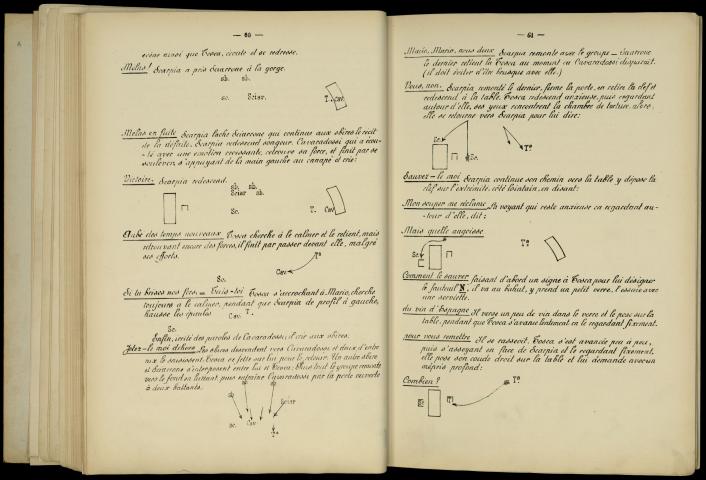 — 60 —
Tosca, écoute et se redresse.
Mélas! Scarpia a pris Sciarrone à la gorge.
sb. sb.
sc. Sciar. T. Cav
Mélas en fuite Scarpia lâche Sciarrone qui continue aux sbires le récit
de la défaite. Scarpia redescend songeur. Cavaradossi qui a écou-
-té avec une émotion croissante, retrouve sa force, et finit par se
soulever, s'appuyant de la main gauche au canapé et crie:
Victoire. Scarpia redescend.
sb. sb.
Sciar sb.
Sc. T. Cav
L'aube des temps nouveaux Tosca cherche à le calmer et le retient, mais
retrouvant encore des forces, il finit par passer devant elle, malgré
ses efforts.
Sc. T°
Cav
Si tu brises nos fers = Tais-toi Tosca s'accrochant à Mario, cherche
toujours à le calmer, pendant que Scarpia de profil à gauche,
hausse les épaules Cav T.
Sc.
Enfin, irrité des paroles de Cavaradossi, il crie aux sbires:
Jetez-le moi dehors Les sbires descendent vers Cavaradossi et deux d'entre
eux le saisissent. Tosca se jette sur lui pour le retenir. Un autre sbire
et Sciarrone s'interposent entre lui et Tosca. Puis tout le groupe remonte
vers le fond en luttant puis entraîne Cavaradossi par la porte ouverte
à deux battants.
Sciar
Sc. Cav
T.
— 61 —
Mario, Mario, nous deux Scarpia remonte avec le groupe — Sciarrone
le dernier retient la Tosca au moment où Cavaradossi disparaît.
(il doit éviter d'être brusque avec elle.)
Vous, non. Scarpia remonté le dernier, ferme la porte, en retire la clef et
redescend à la table. Tosca redescend anxieuse, puis regardant
autour d'elle, ses yeux rencontrent la chambre de torture. Alors,
elle se retourne vers Scarpia pour lui dire:
Sc. Sc. T°
Sauvez-le moi Scarpia continue son chemin vers la table y dépose la
clef sur l'extrémité, côté lointain, en disant:
Mon souper me réclame La voyant qui reste anxieuse en regardant au-
-tour d'elle, dit:
Mais quelle angoisse
Sc. T°
Comment le sauver faisant d'abord un signe à Tosca pour lui désigner
le fauteuil N, il va au bahut, y prend un petit verre, l'essuie avec
une serviette.
du vin d'Espagne Il verse un peu de vin dans le verre et le pose sur la
table, pendant que Tosca s'avance lentement en le regardant fixement.
pour vous remettre Il se rasseoit. Tosca s'est avancée peu à peu,
puis s'asseyant en face de Scarpia et le regardant fixement,
elle pose son coude droit sur la table et lui demande avec un
mépris profond:
Combien?
T°